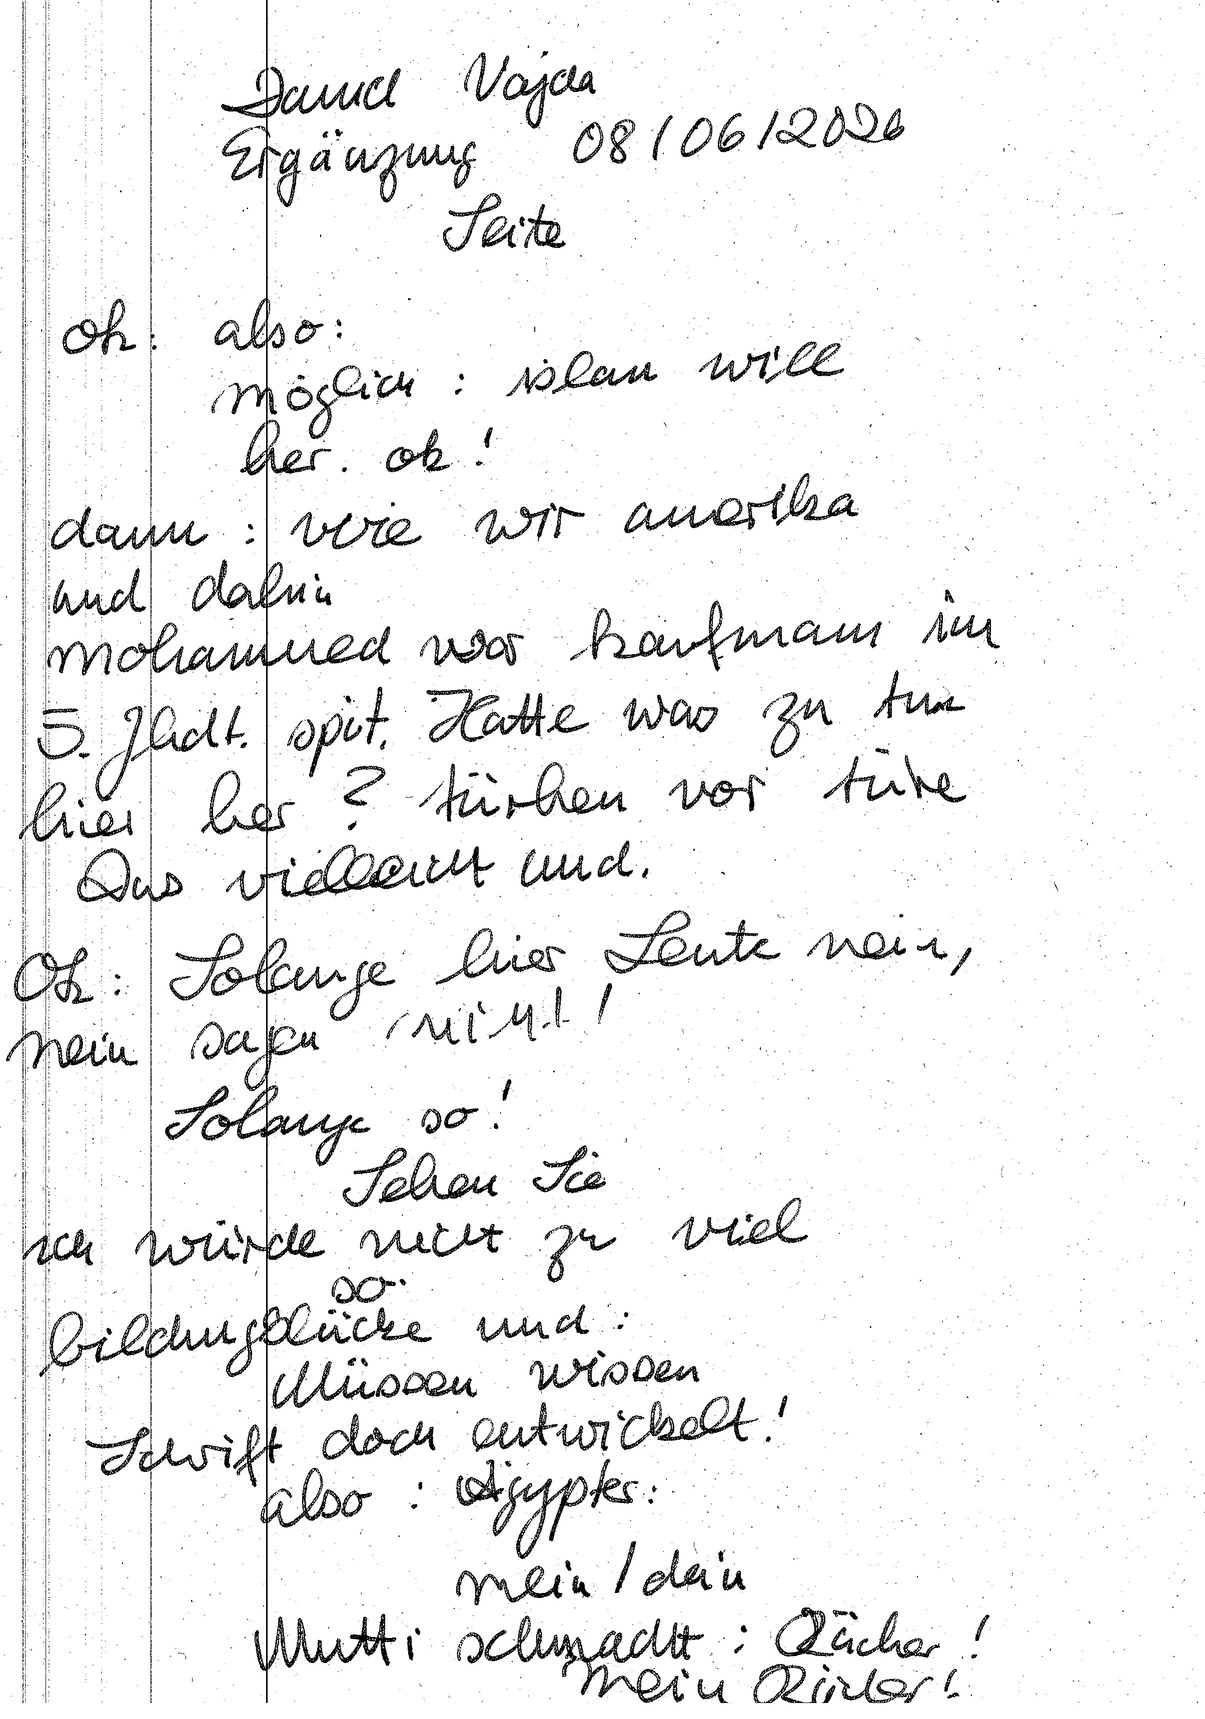 David Vajda
Ergänzung 08/06/2026
Seite
Ok: also:
möglich: islam will
her. ok!
dann: wie wir amerika
und dahin
Mohammed war kaufmann im
5. Jhdt. spät. Hatte was zu tun
hier her? türken vor türe
Das vielleicht und.
Ok: Solange hier Leute nein,
nein sagen nicht!
Solange so!
Sehen Sie
ich würde nicht zu viel
so.
bildungslücke und:
Müssen wissen
Schrift doch entwickelt!
also: Ägypter:
mein / dein
Mutti schmacht: Rächer!
mein Rächer!